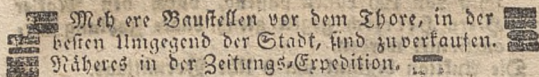 Meh ere Baustellen vor dem Thore, in der
besten Umgegend der Stadt, sind zu verkaufen.
Näheres in der Zeitungs-Expedition.